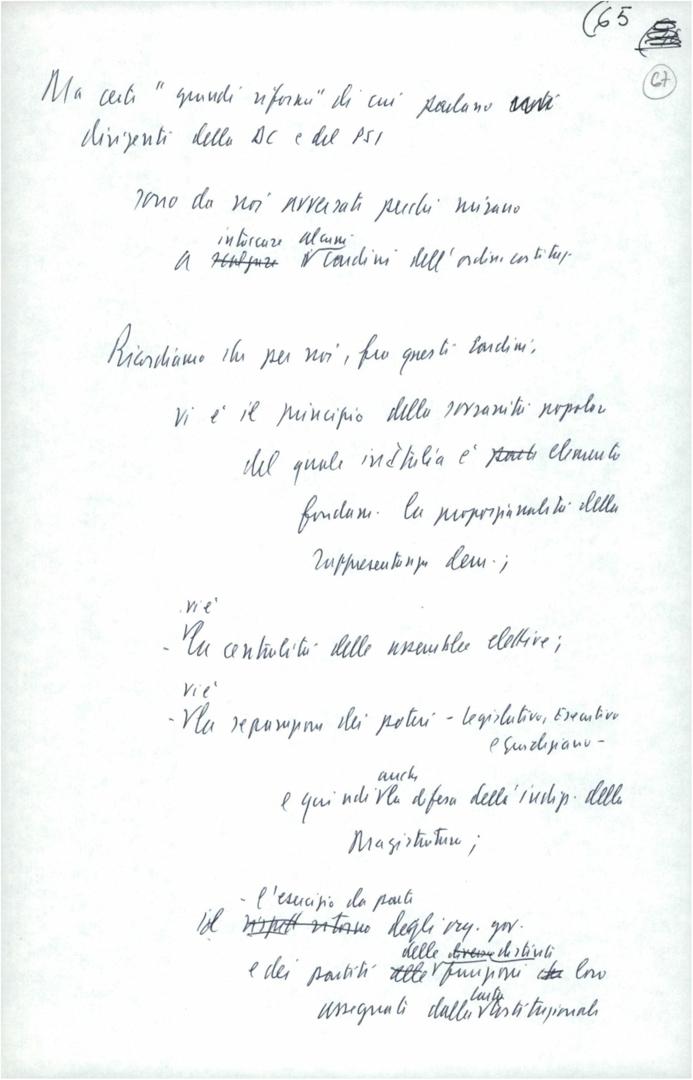 (65
67
Ma certe "grandi riforme" di cui parlano
dirigenti della DC e del PSI
sono da noi avversate perché mirano
intaccare alcuni
a cardini dell'ordine costituz.
Ricordiamo che per noi, fra questi cardini,
vi è il principio della sovranità popolare
del quale in Italia è parte elemento
fondam. la proporzionalità della
rappresentanza dem.;
vi è
- la centralità delle assemblee elettive;
vi è
- la separazione dei poteri - Legislativo, Esecutivo
e Giudiziario -
anche
e quindi la difesa dell'indip. della
Magistratura;
- l'esercizio da parte
il rispett ritorno degli org. gov.
delle diverse distinti
e dei partiti alle funzioni che loro
carta
assegnati dalla costituzionale